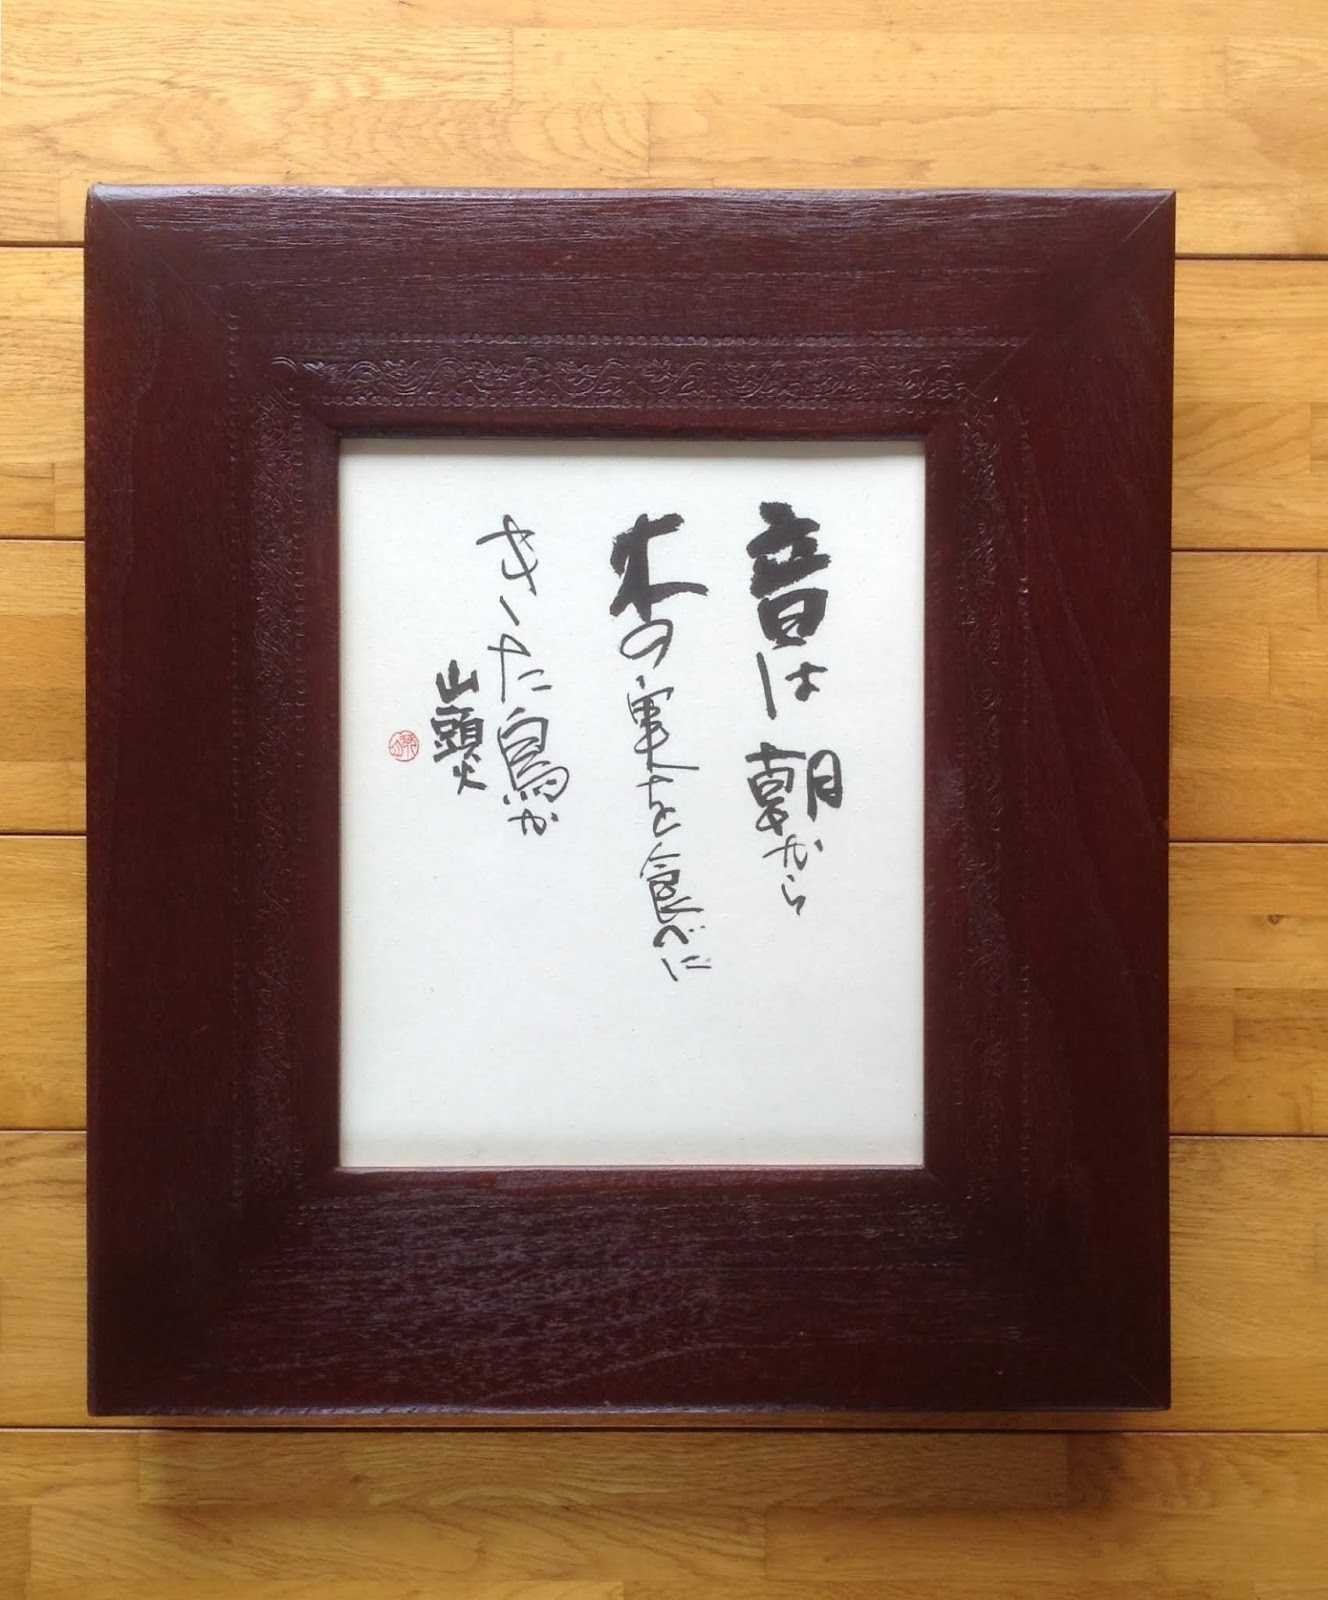 音は朝から
木の実を食べに
きた鳥か
山頭火